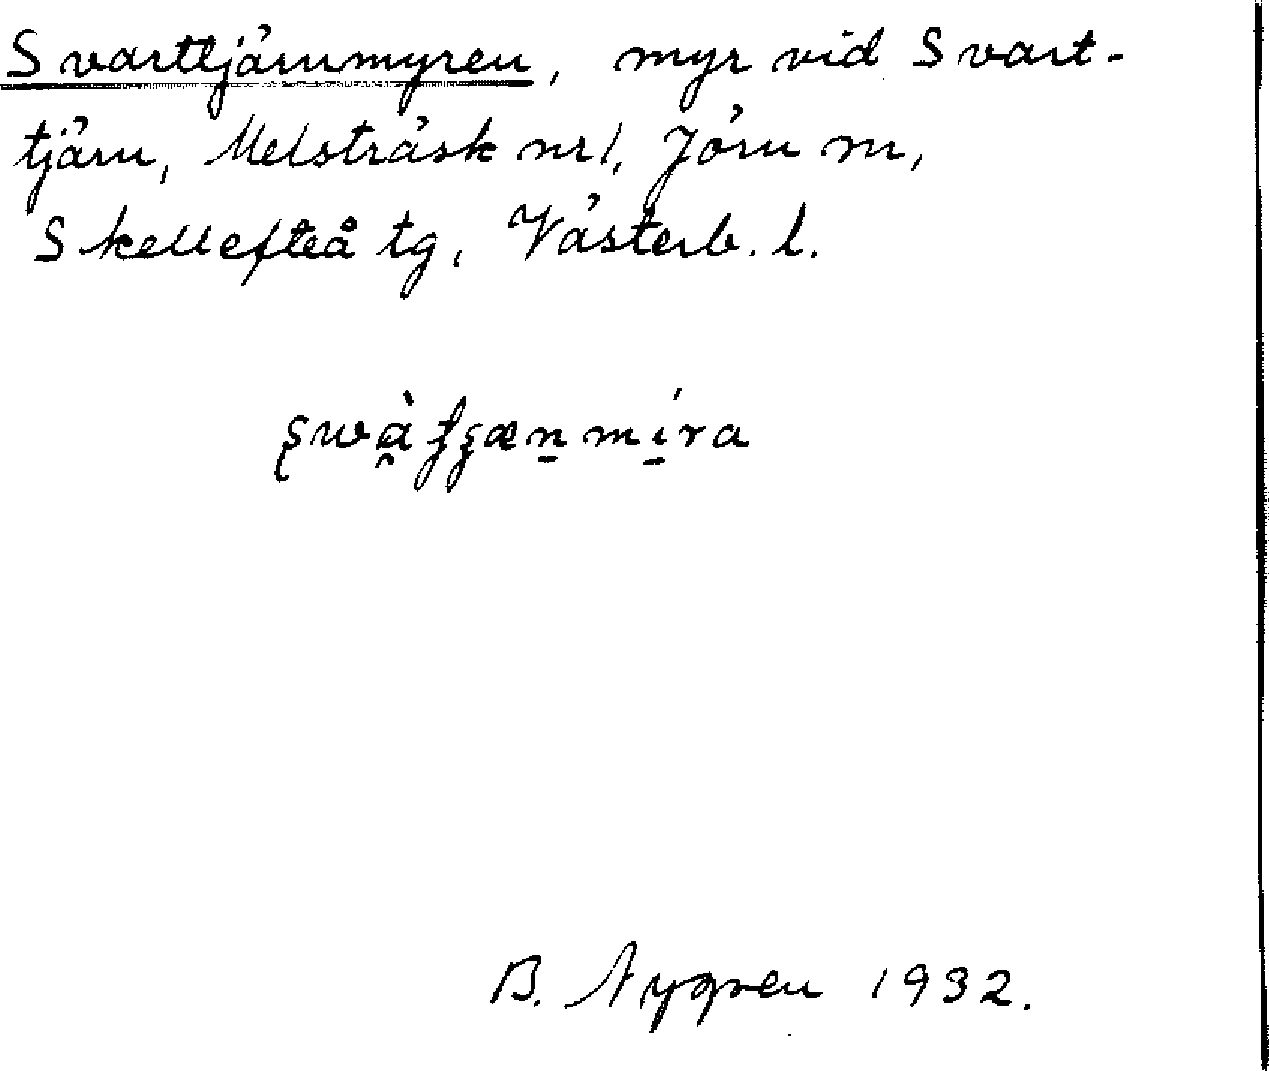 Svarttjärnmyren, myr vid Svart-
tjärn, Melsträsk nr 1, Jörn sn,
Skellefteå tg, Västerb. l.
B. Nygren 1932.